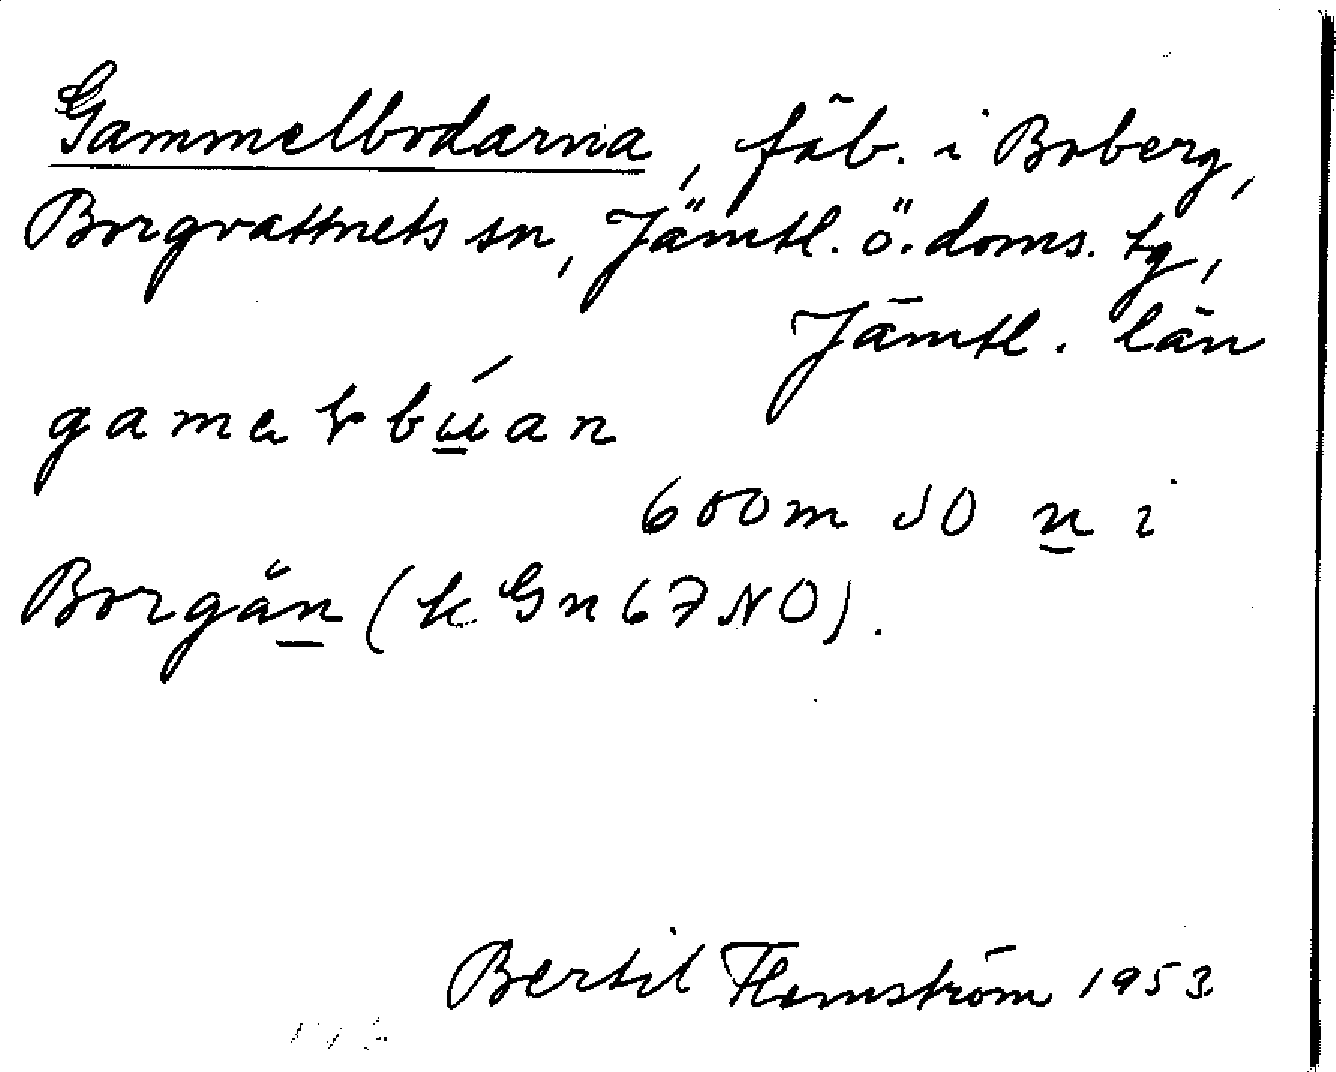 Gammelbodarna, fäb. i Boberg,
Borgvattnets sn, Jämtl. ö. doms. tg,
Jämtl. län
600m SO n i
Borgån (k Gn 67 NO).
Bertil Flemström 1953